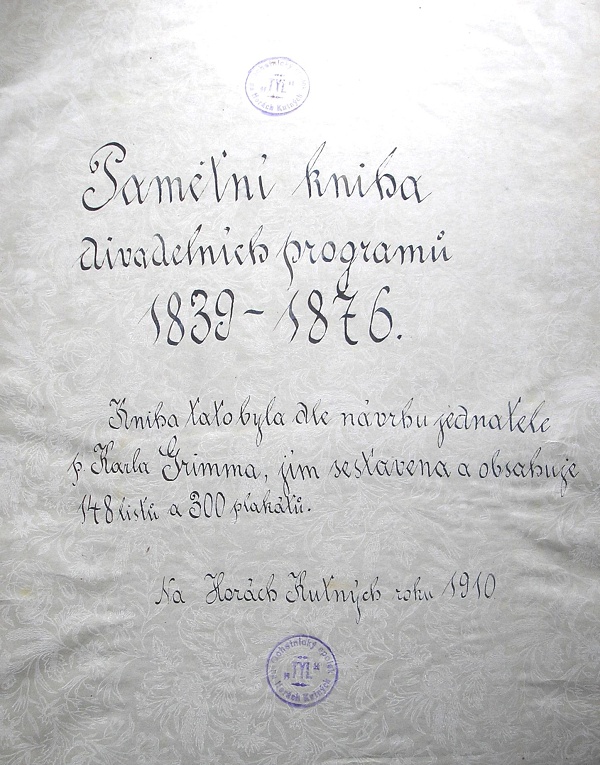 "TYL"
Horách Kutných
Pamětní kniha
divadelních programů
1839-1876.
Kniha tato byla dle návrhu jednatele
p Karla Grimma, jím sestavena a obsahuje
148 listů a 300 plakátů.
Na Horách Kutných roku 1910
ochotnický spolek
"TYL"
Horách Kutných